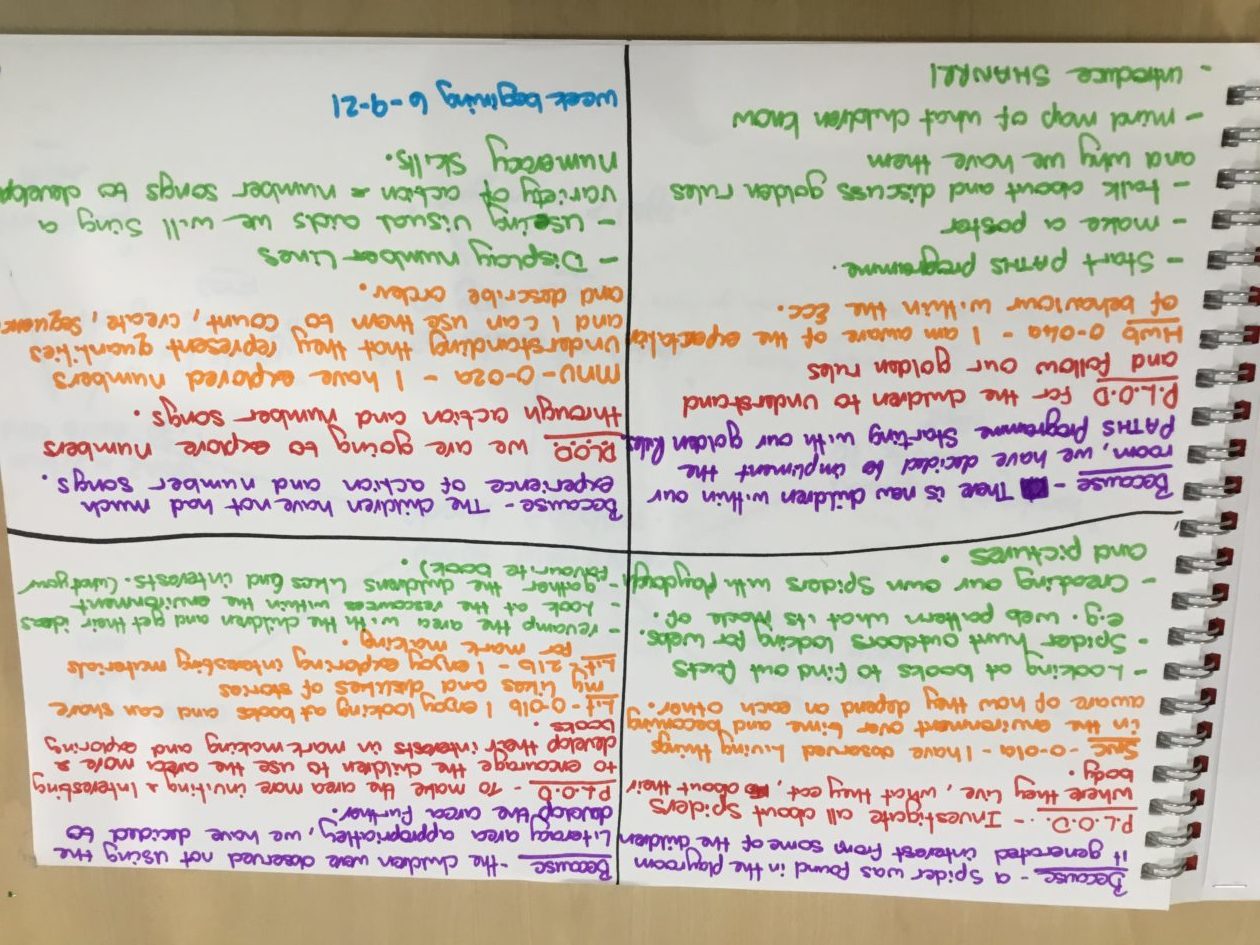 Because - a spider was found in the playroom
it generated interest from some of the children
P.L.O.D. - Investigate all about spiders
where they live, what they eat, about their
body.
SNC - 0-01a - I have observed living things
in the environment over time and becoming
aware of how they depend on each other.
- Looking at books to find out facts
- Spider hunt outdoors looking for webs.
e.g. web pattern what its made of.
- Creating our own spiders with playdough
and pictures.
Because - the children were observed not using the
Literacy area appropriatley, we have decided to
develop the area further.
P.L.O.D - To make the area more inviting & interesting
to encourage the children to use the area more &
develop their interests in mark making and exploring
books.
Lit-0-01b I enjoy looking at books and can share
my likes and dislikes of stories
Lit 21b - I enjoy exploring interesting materials
for mark making.
- revamp the area with the children and get their ideas
- Look at the resources within the environment
- gather the childrens likes and interests. (what your
favourite book).
Because - There is new children within our
room, we have decided to impliment the
PATHS Programme starting with our golden Rules
P.L.O.D for the children to understand
and follow our golden rules
HWB 0-04a - I am aware of the expectation
of behaviour within the ECC.
- Start PATHS programme.
- make a poster
- talk about and discuss golden rules
and why we have them
- mind map of what children know
- introduce SHANRRI
Because - The children have not had much
experience of action and number songs.
PLOD we are going to explore numbers
through action and number songs.
MNU-0-02a - I have explored numbers
understanding that they represent quantities
and I can use them to count, create, sequence
and describe order.
- Display number lines
- Using visual aids we will sing a
variety of action & number songs to develop
numeracy skills.
week beginning 6-9-21